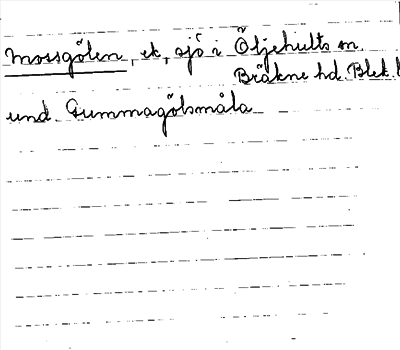 Mossgölen, ek, sjö i Öljehults sn.
Bräkne hd. Blek. l
und. Gummagölsmåla